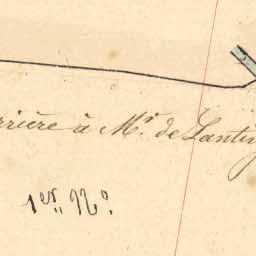 rrière à Mr. de Lantiv
1er. No.